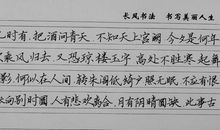 长风书法 书写美丽人生
几时有，把酒问青天 不知天上宫阙，今夕是何年
乘风归去，又恐琼楼玉宇 高处不胜寒 起舞
影，何似在人间 转朱阁低绮户照无眠，不应有恨
向别时圆 人有悲欢离合，月有阴晴圆缺 此事古